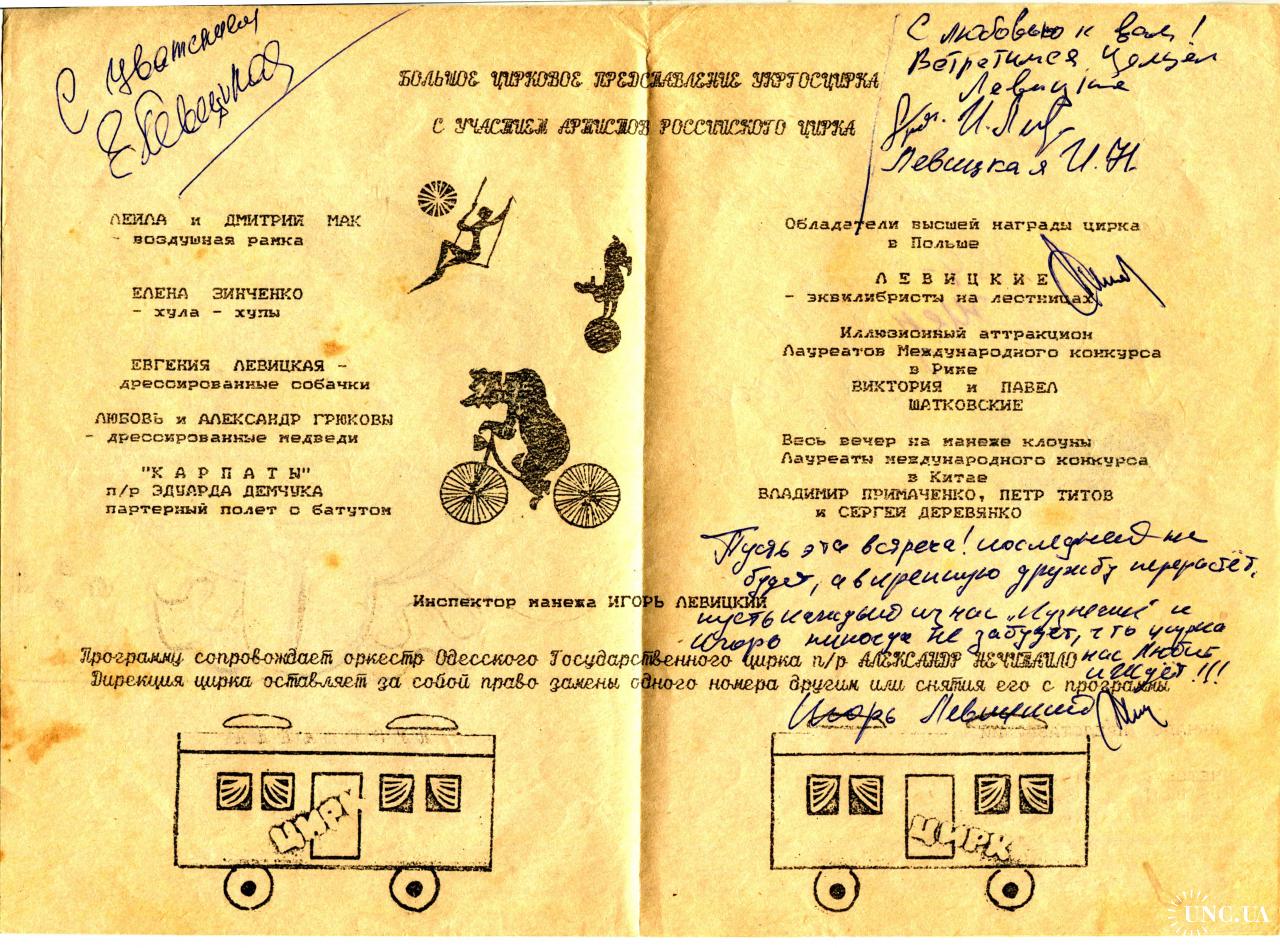 С уважением
Е Левицкая
С любовью к вам!
Встретимся
Левицкие
И. Лев
Левицкая И. Н.
БОЛЬШОЕ ЦИРКОВОЕ ПРЕДСТАВЛЕНИЕ УКРГОСЦИРКА
С УЧАСТИЕМ АРТИСТОВ РОССИЙСКОГО ЦИРКА
ЛЕЙЛА и ДМИТРИЙ МАК
- воздушная рамка
ЕЛЕНА ЗИНЧЕНКО
- хула - хупы
ЕВГЕНИЯ ЛЕВИЦКАЯ -
дрессированные собачки
ЛЮБОВЬ и АЛЕКСАНДР ГРЮКОВЫ
- дрессированные медведи
"К А Р П А Т Ы"
п/р ЭДУАРДА ДЕМЧУКА
партерный полет с батутом
Обладатели высшей награды цирка
в Польше
Л Е В И Ц К И Е
- эквилибристы на лестницах
Иллюзионный аттракцион
Лауреатов Международного конкурса
в Риме
ВИКТОРИЯ и ПАВЕЛ
ШАТКОВСКИЕ
Весь вечер на манеже клоуны
Лауреаты международного конкурса
в Китае
ВЛАДИМИР ПРИМАЧЕНКО, ПЕТР ТИТОВ
и СЕРГЕЙ ДЕРЕВЯНКО
Пусть эта встреча! последней не
будет, а в крепкую дружбу перерастёт,
пусть каждый из нас и
Игорь никогда не забудет, что цирка
нас любит
и ждёт!!!
Игорь Левицкий
Инспектор манежа ИГОРЬ ЛЕВИЦКИЙ
Программу сопровождает оркестр Одесского Государственного цирка п/р АЛЕКСАНДР НЕЧИПАЙЛО
Дирекция цирка оставляет за собой право замены одного номера другим или снятия его с программы
ЦИРК
ЦИРК
UNC.UA